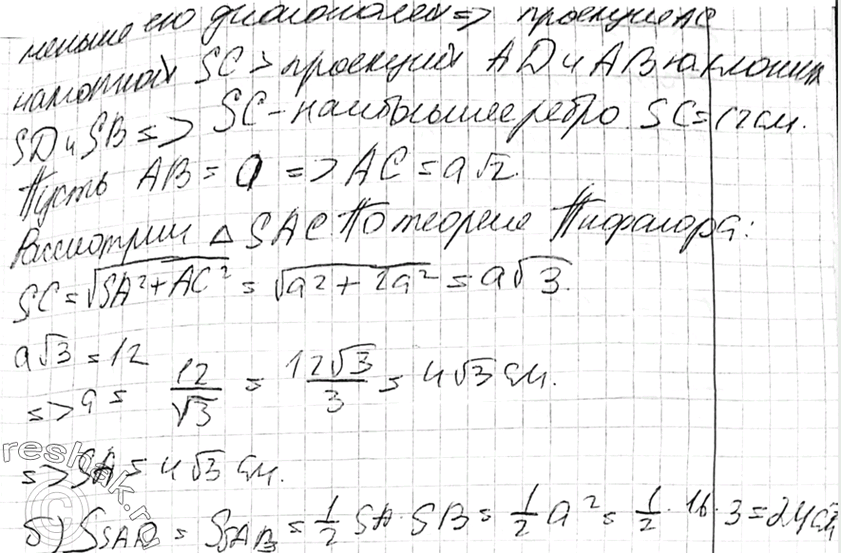 меньше его диагоналей => проекция AC
наклонной SC > проекций AD и AB наклонных
SD и SB => SC - наибольшее ребро. SC = 12 см.
Пусть AB = a => AC = a√2.
Рассмотрим △ SAC По теореме Пифагора:
SC = √(SA² + AC²) = √(a² + 2a²) = a√3.
a√3 = 12
=> a = 12/√3 = 12√3/3 = 4√3 см.
=> SA = 4√3 см.
б) S SAD = S SAB = 1/2 SA · SB = 1/2 a² = 1/2 · 16 · 3 = 24 см²
reshak.ru